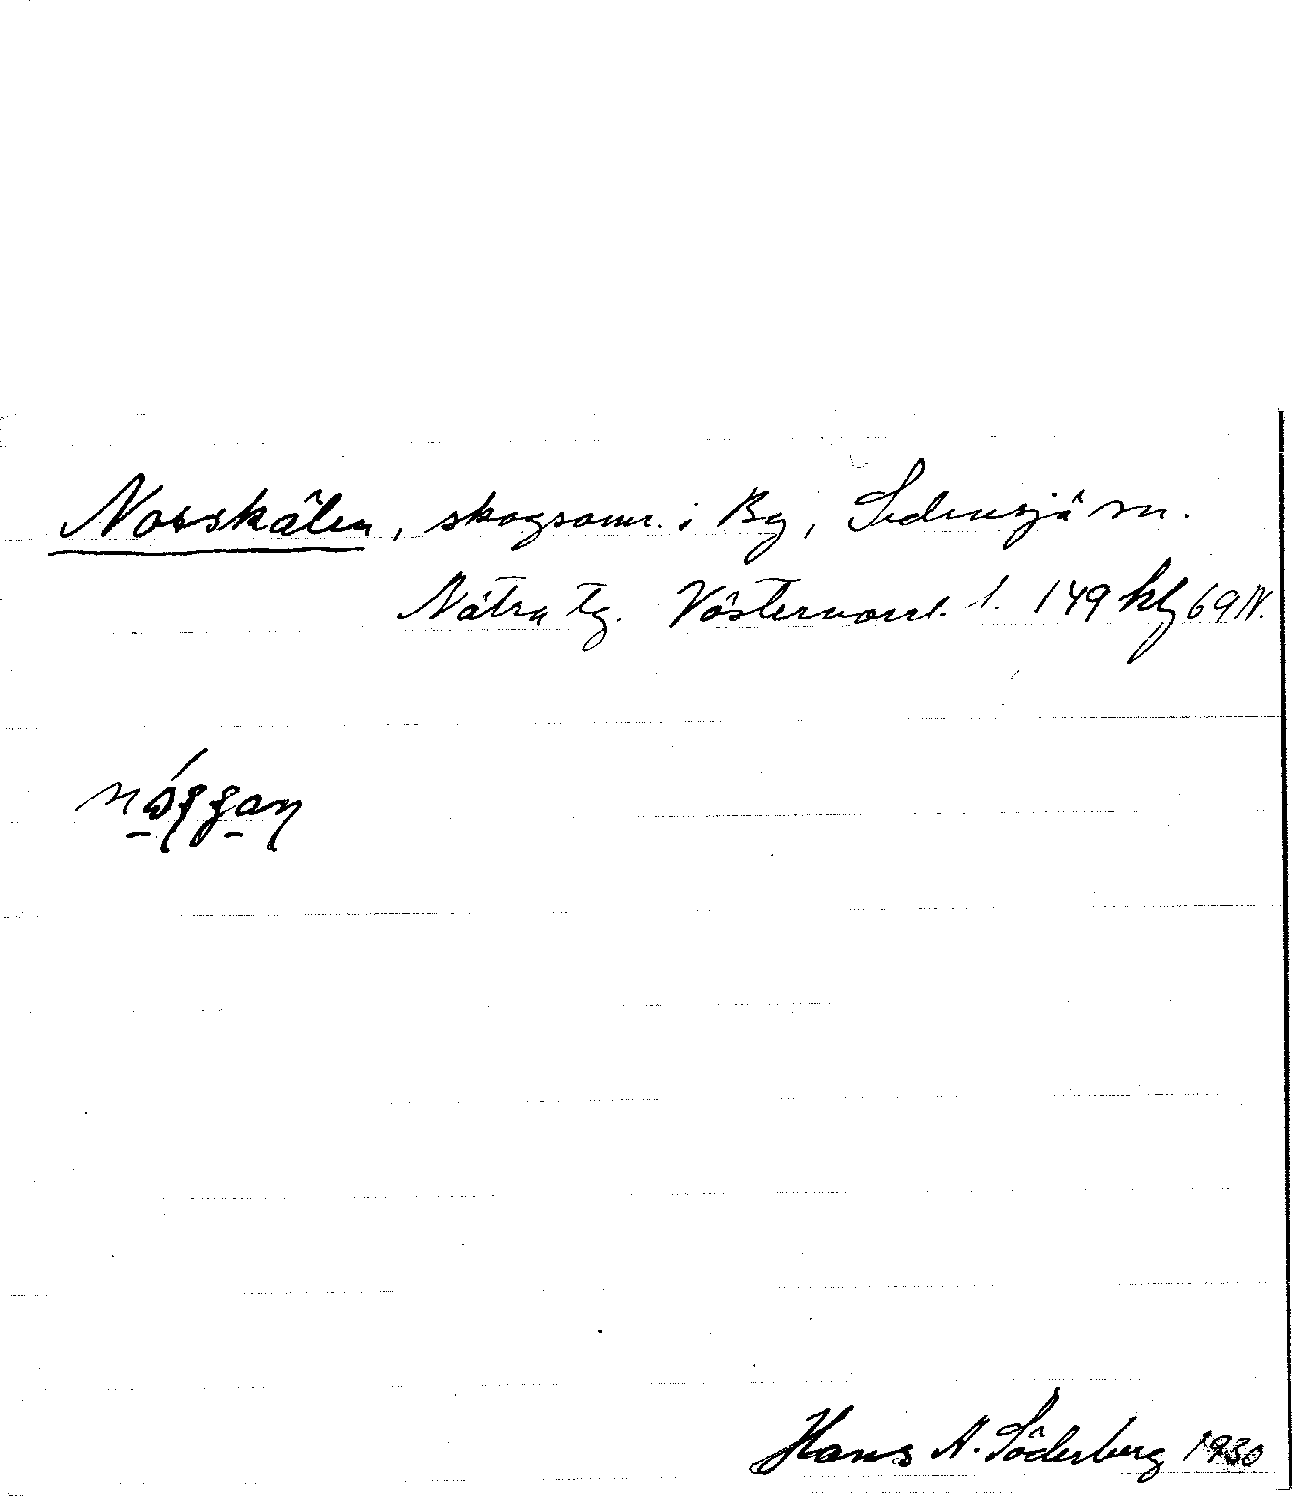 Norskålen, skogsomr. i By, Sidensjö sn.
Nätra tg. Västernorrl. l. 149 kbl 69 IV.
Hans A. Söderberg 1930